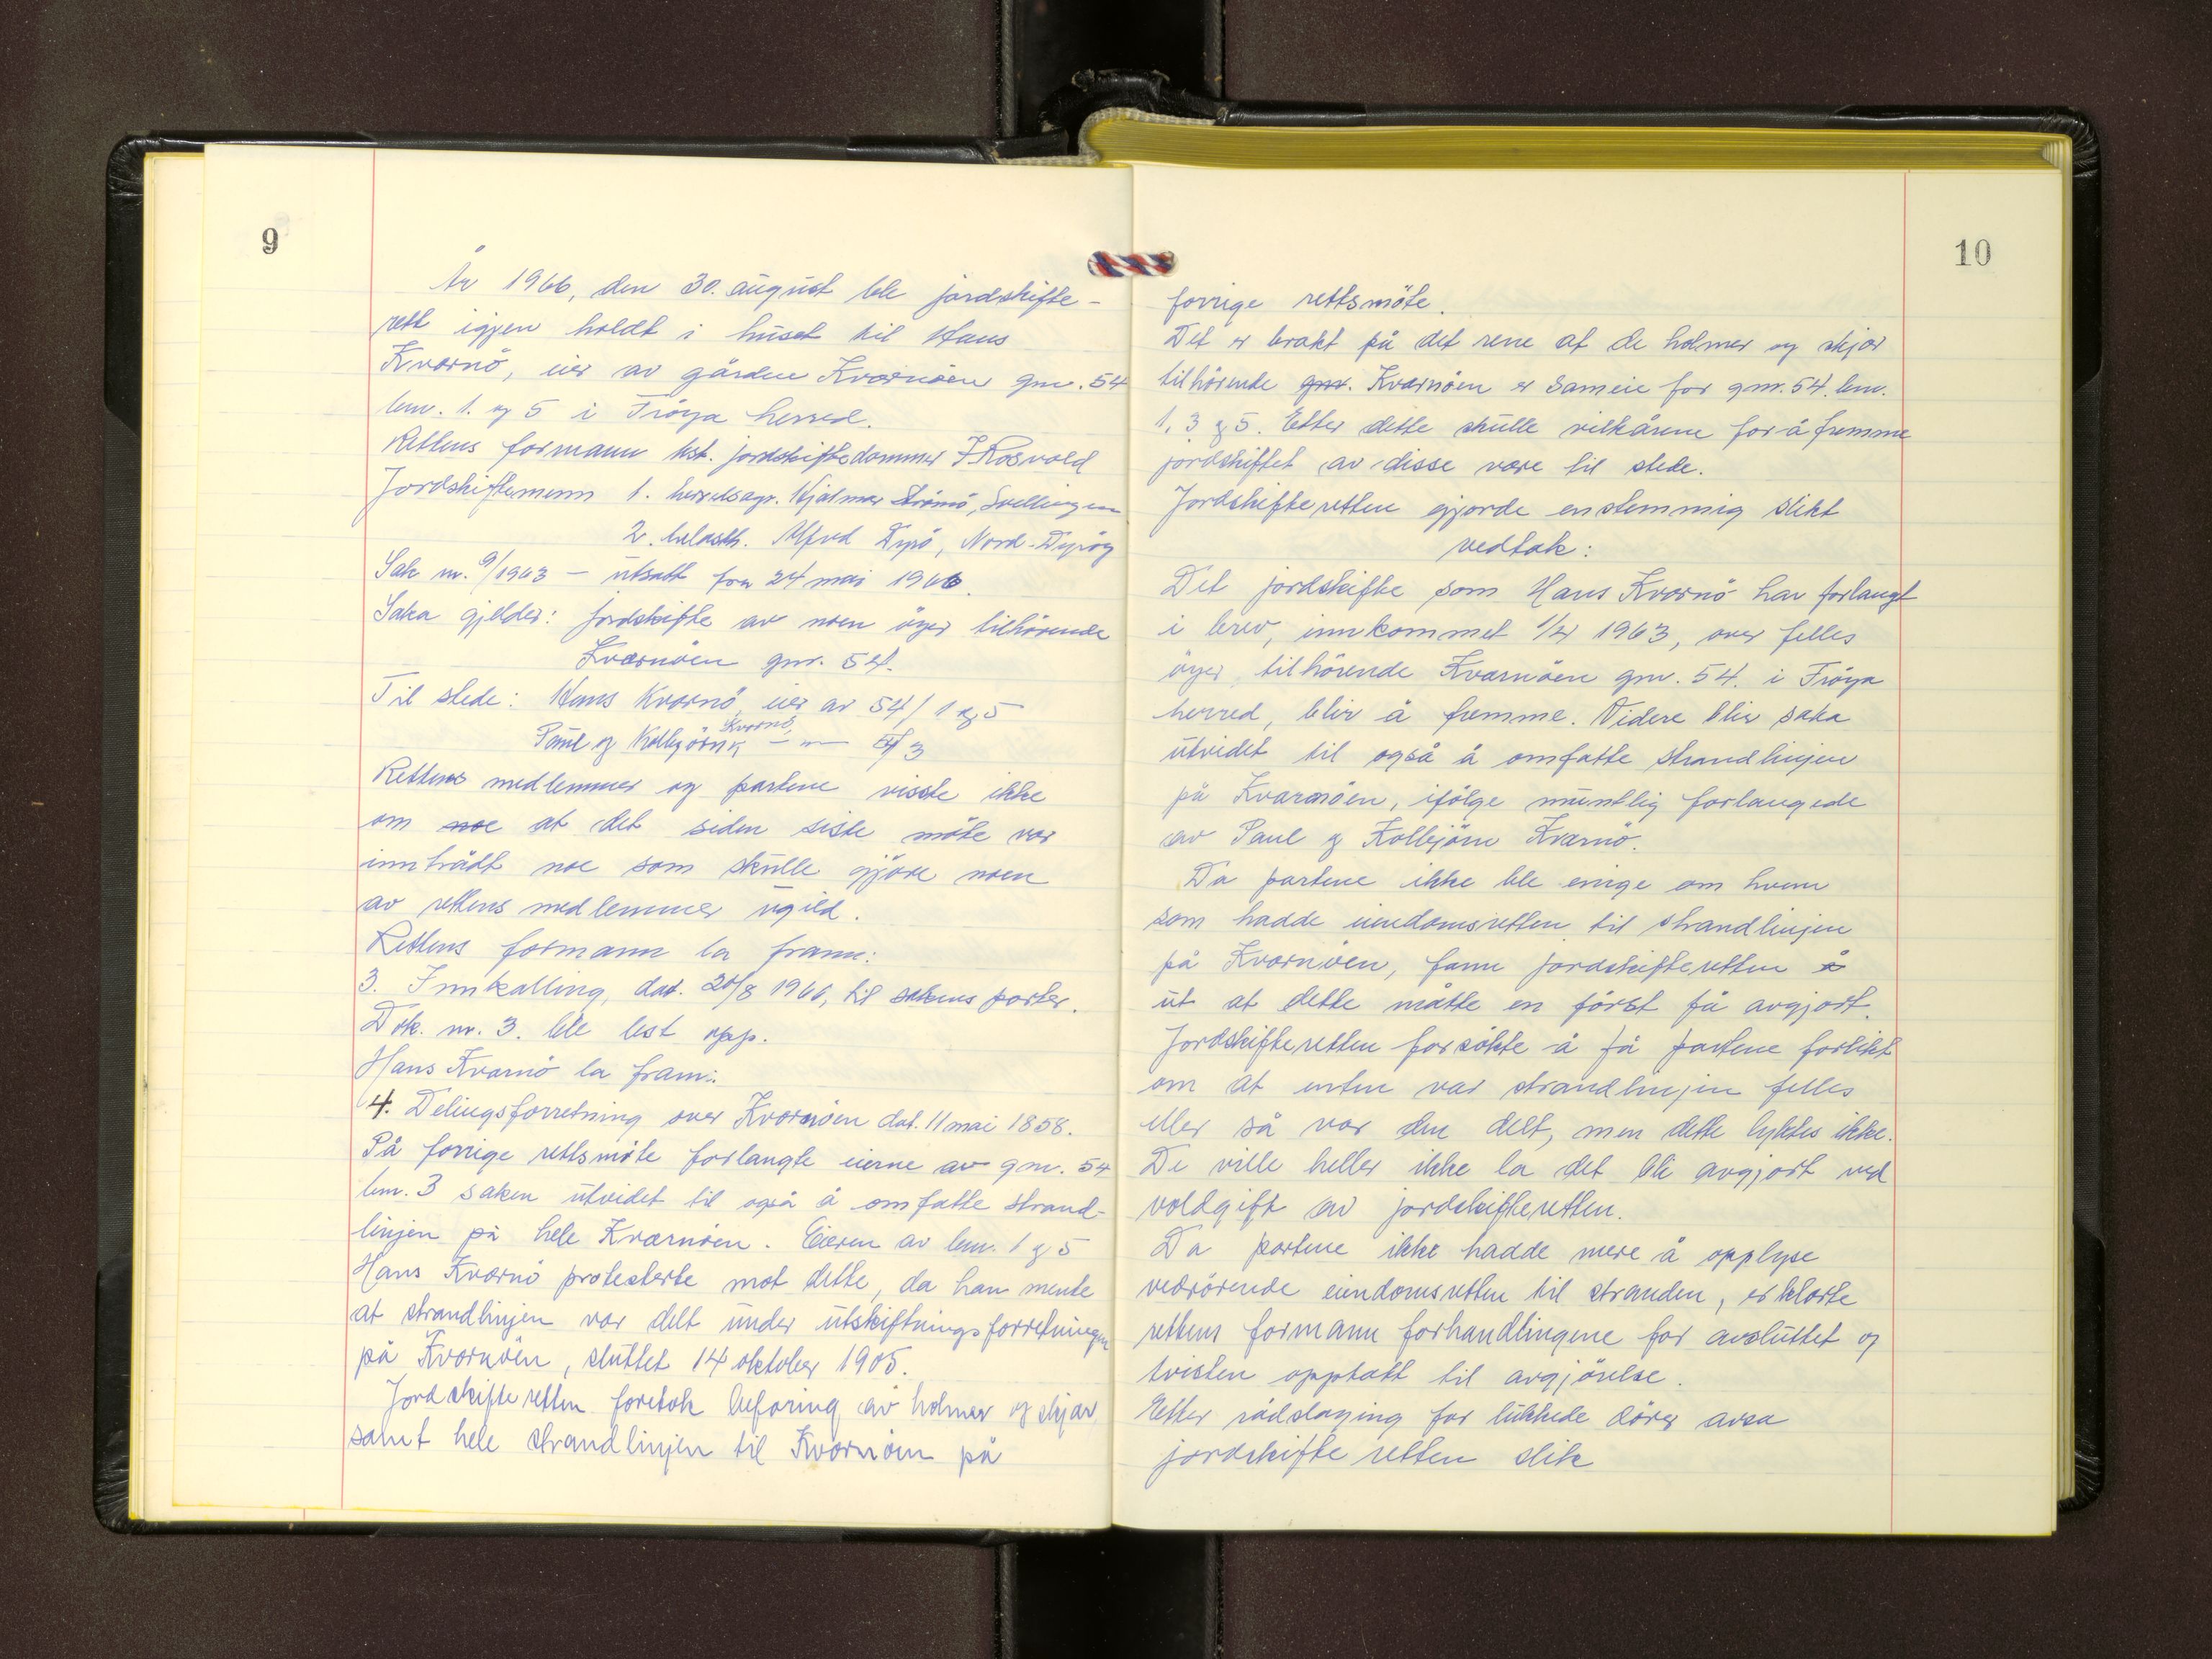 9
År 1966, den 30. august ble jordskifte-
rett igjen holdt i huset til Hans
Kvernö, eier av gården Kvernöen gnr. 54
bnr. 1. og 5 i Fröya herred.
Rettens formann kst. jordskiftedommer I Rosvold
Jordskiftemenn 1. herredsagr. Hjalmar Strömö, Svellingen
2. Alfred Dyrö, Nord-Dyröy
Sak nr. 9/1963 – utsatt fra 24 mai 1966.
Saka gjelder: jordskifte av noen öyer tilhörende
Kvernöen gnr. 54.
Til stede: Hans Kvernö, eier av 54/1 og 5
Paul og Kolbjörn Kvernö, –"– 54/3
Rettens medlemmer og partene visste ikke
om noe at det siden siste möte var
inntrådt noe som skulle gjöre noen
av rettens medlemmer ugild.
Rettens formann la fram:
3. Innkalling, dat. 20/8 1966, til sakens parter.
Dok. nr. 3. ble lest opp.
Hans Kvernö la fram:
4. Delingsforretning over Kvernöen dat. 11 mai 1858.
På forrige rettsmöte forlangte eierne av gnr. 54
bnr. 3 saken utvidet til også å omfatte strand-
linjen på hele Kvernöen. Eieren av bnr. 1 og 5
Hans Kvernö protesterte mot dette, da han mente
at strandlinjen var delt under utskiftningsforretningen
på Kvernöen, sluttet 14 oktober 1905.
Jordskifteretten foretok befaring av holmer og skjær
samt hele strandlinjen til Kvernöen på
10
forrige rettsmöte.
Det er brakt på det rene at de holmer og skjær
tilhörende gnr. Kvernöen er sameie for gnr. 54. bnr.
1, 3 og 5. Etter dette skulle vilkårene for å fremme
jordskiftet av disse være til stede.
Jordskifteretten gjorde enstemmig slikt
vedtak:
Det jordskifte som Hans Kvernö har forlangt
i brev, innkommet 1/4 1963, over felles
öyer, tilhörende Kvernöen gnr. 54. i Fröya
herred, blir å fremme. Videre blir saka
utvidet til også å omfatte strandlinjen
på Kvernöen, ifölge muntlig forlangede
av Paul og Kolbjörn Kvernö.
Da partene ikke ble enige om hvem
som hadde eiendomsretten til strandlinjen
på Kvernöen, fann jordskifteretten å
ut at dette måtte en först få avgjort.
Jordskifteretten forsökte å få partene forlikt
om at enten var strandlinjen felles
eller så var den delt, men dette lyktes ikke.
De ville heller ikke la det bli avgjort ved
voldgift av jordskifteretten.
Da partene ikke hadde mere å opplyse
vedrörende eiendomsretten til stranden, erklærte
rettens formann forhandlingene for avsluttet og
tvisten opptatt til avgjörelse.
Etter rådslaging for lukkede dörer avsa
jordskifteretten slik